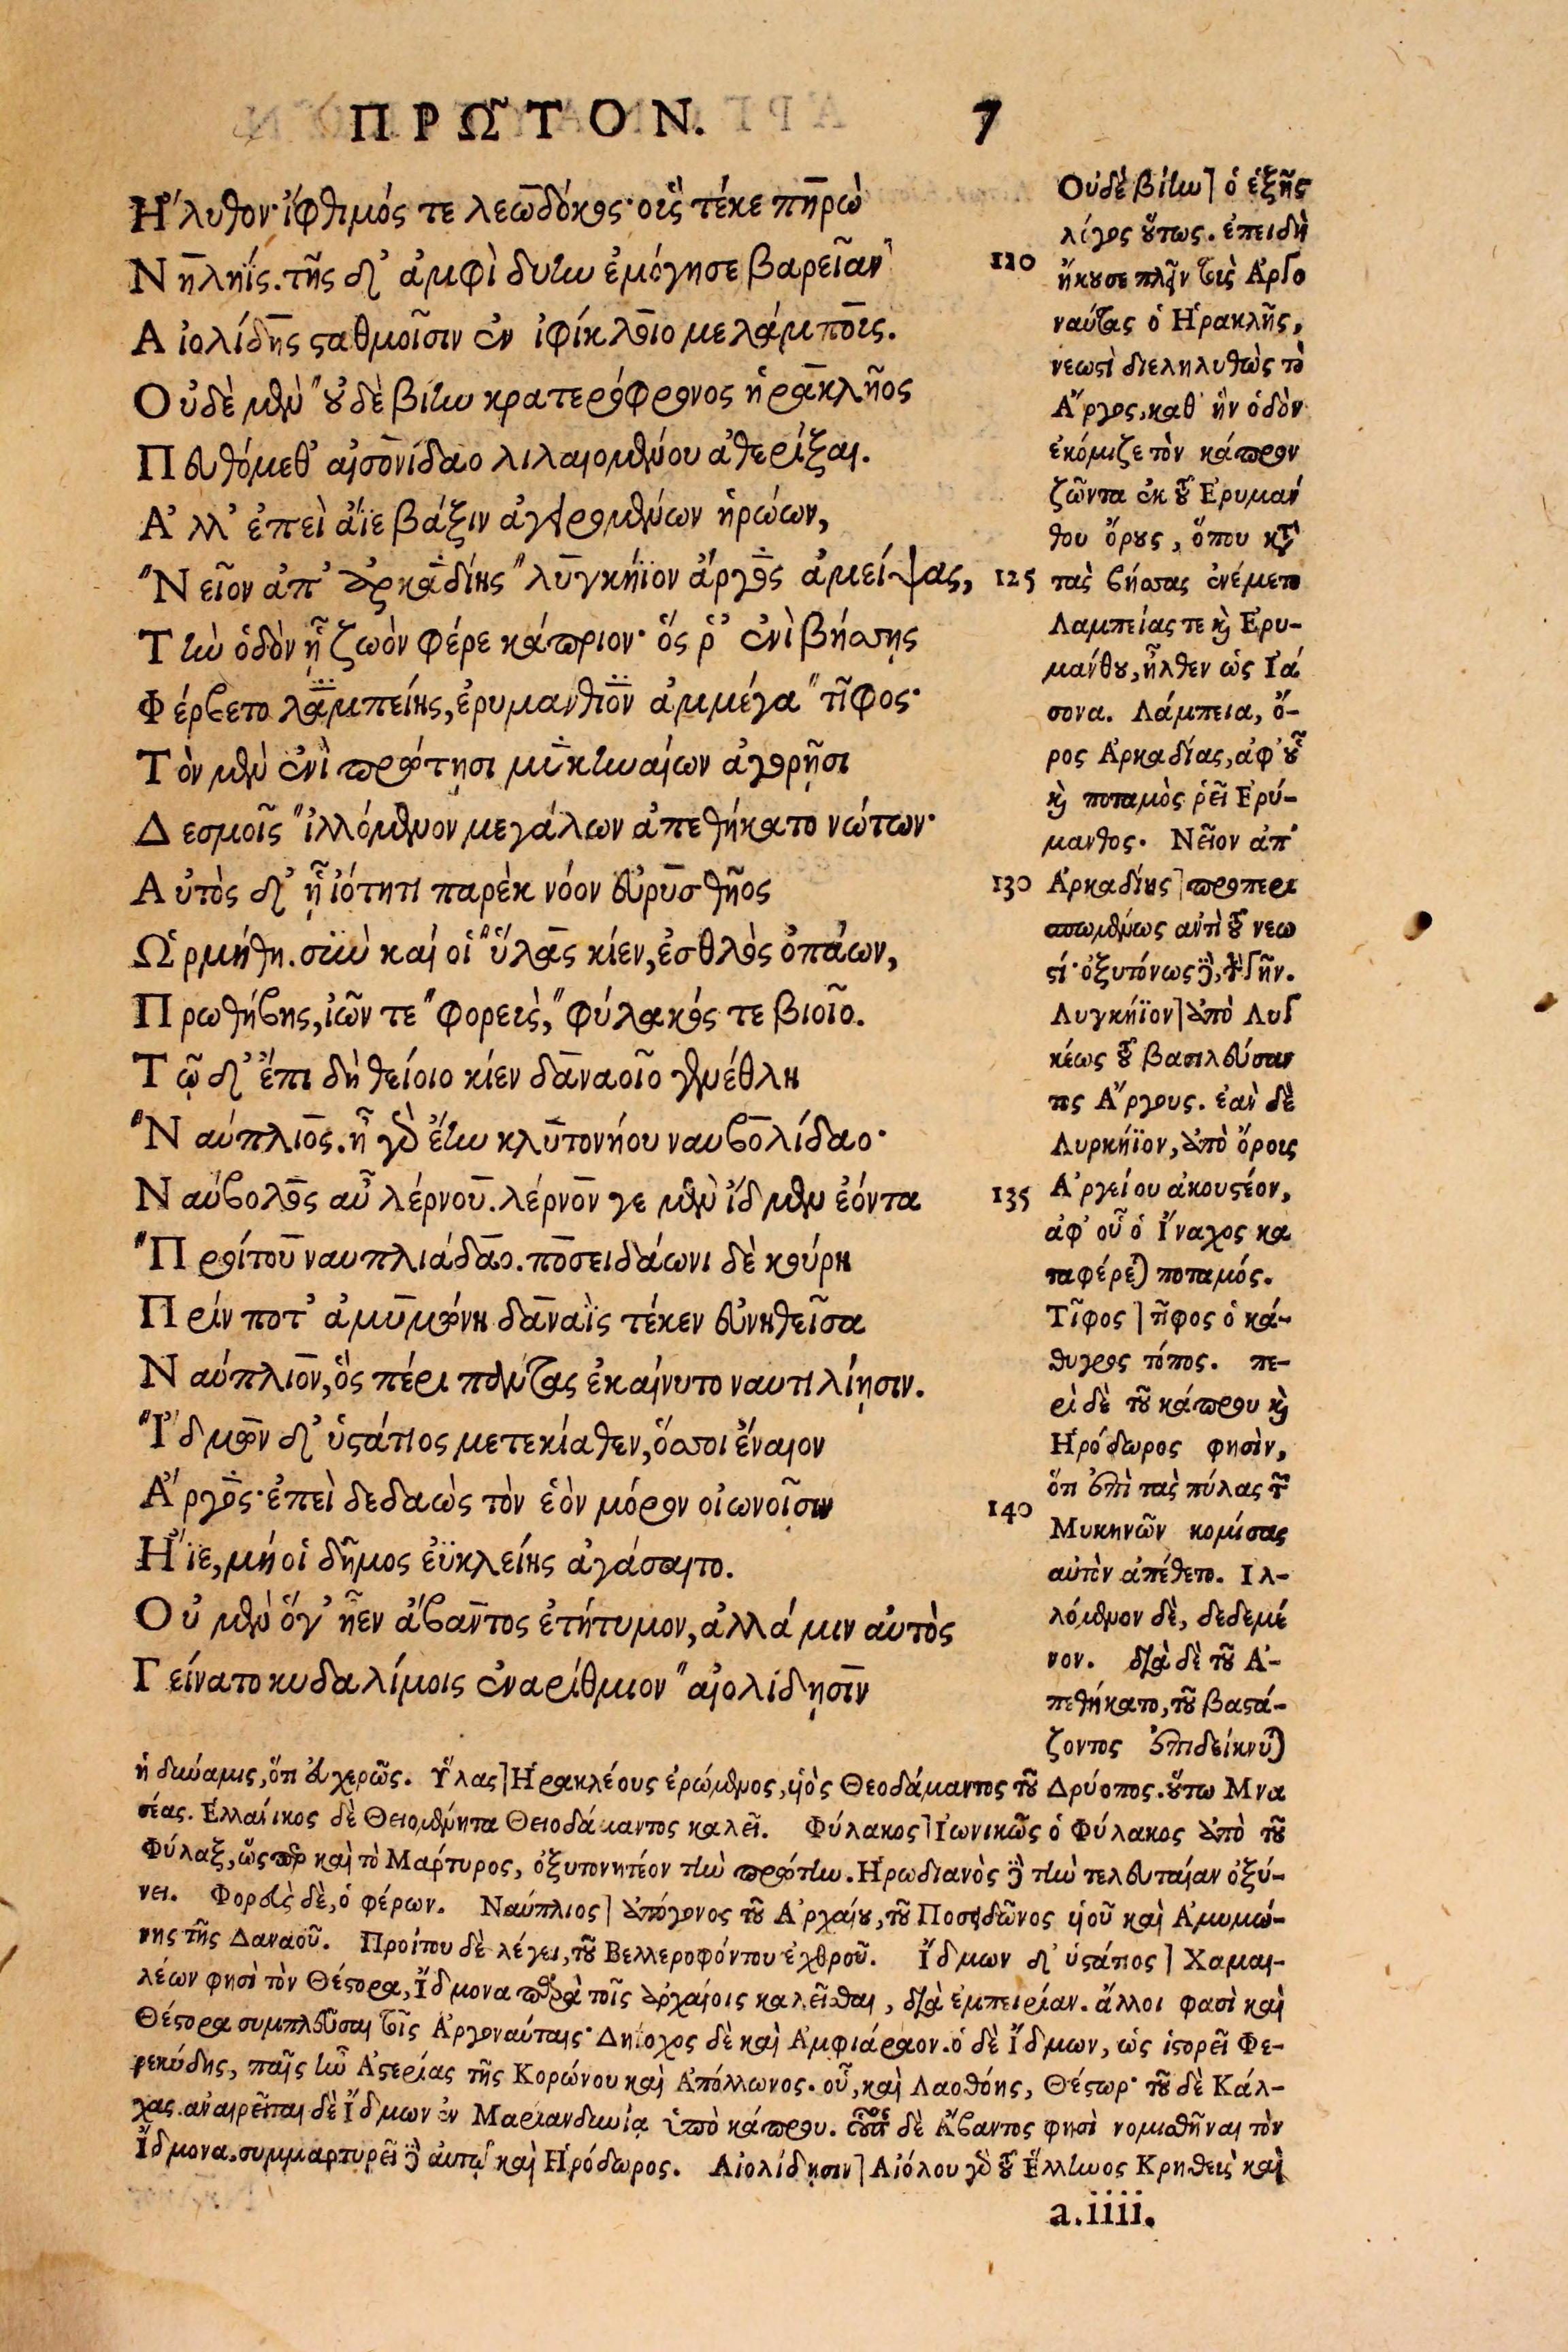 ΠΡΩ͂ΤΟΝ. 7
Ἤλυθον· ἴφθιμός τε λεώδοκος· οἷς τέκε πηρὼ
Νηληΐς. τῆς δ' ἀμφὶ δύην ἐμόγησε βαρεῖαν
Αἰολίδης σταθμοῖσιν ἐν ἰφίκλειο μελάμπους.
Οὐδὲ μὲν οὐδὲ βίην κρατερόφρονος ἡρακλῆος
Πευθόμεθ' αἰσονίδαο λιλαιομένου ἀθερίξαι.
Ἀλλ' ἐπεὶ ἄϊε βάξιν ἀγειρομένων ἡρώων,
Νεῖον ἀπ' ἀρκαδίης λυγκήϊον ἄργος ἀμείψας,
Τὴν ὁδὸν ᾗ ζωὸν φέρε κάπριον· ὅς ῥ' ἐνὶ βήσσης
Φέρβετο λαμπείης, ἐρυμάνθιον ἀμμέγα τῖφος·
Τὸν μὲν ἐνὶ πρώτῃσι μυκηναίων ἀγορῇσι
Δεσμοῖς ἰλλόμενον μεγάλων ἀπεθήκατο νώτων·
Αὐτὸς δ' ᾗ ἰότητι παρὲκ νόον εὐρυσθῆος
Ὡρμήθη. σὺν καί οἱ ὕλας κίεν, ἐσθλὸς ὀπάων,
Πρωθήβης, ἰῶν τε φορεὺς, φύλακός τε βιοῖο.
Τῷ δ' ἔπι δὴ θείοιο κίεν δαναοῖο γενέθλη
Ναύπλιος. ἦ γὰρ ἔην κλυτονήου ναυβολίδαο·
Ναύβολος αὖ λέρνου. λέρνον γε μὲν ἴδμεν ἐόντα
Προίτου ναυπλιάδαο. ποσειδάωνι δὲ κούρη
Πρίν ποτ' ἀμυμώνη δαναῒς τέκεν εὐνηθεῖσα
Ναύπλιον, ὃς πέρι πάντας ἐκαίνυτο ναυτιλίῃσιν.
Ἴδμων δ' ὑστάτιος μετεκίαθεν, ὅσσοι ἔναιον
Ἄργος· ἐπεὶ δεδαὼς τὸν ἑὸν μόρον οἰωνοῖσιν
Ἤϊε, μή οἱ δῆμος ἐϋκλείης ἀγάσαιτο.
Οὐ μὲν ὅγ' ἦεν ἄβαντος ἐτήτυμον, ἀλλά μιν αὐτὸς
Γείνατο κυδαλίμοις ἐναρίθμιον αἰολίδῃσιν
120
125
130
135
140
Οὐδὲ βίην] ὁ ἑξῆς
λόγος οὕτως. ἐπειδὴ
ἤκουσε πλεῖν τοὺς Ἀργο
ναύτας ὁ Ἡρακλῆς,
νεωστὶ διεληλυθὼς τὸ
Ἄργος, καθ' ἣν ὁδὸν
ἐκόμιζε τὸν κάπρον
ζῶντα ἐκ τοῦ Ἐρυμάν
θου ὄρους, ὅπου κατὰ
τὰς βήσσας ἐνέμετο
Λαμπείας τε καὶ Ἐρυ-
μάνθου, ἦλθεν ὡς Ἰά
σονα. Λάμπεια, ὄ-
ρος Ἀρκαδίας, ἀφ' οὗ
καὶ ποταμὸς ῥεῖ Ἐρύ-
μανθος. Νεῖον ἀπ'
Ἀρκαδίης] προπερι
σπωμένως ἀντὶ τοῦ νεω
στί· ὀξυτόνως δὲ, τὴν γῆν.
Λυγκήϊον] ἀπὸ Λυγ
κέως τοῦ βασιλεύσαν
τος Ἄργους. ἐὰν δὲ
Λυρκήϊον, ἀπὸ ὄρους
Ἀργείου ἀκουστέον,
ἀφ' οὗ ὁ Ἴναχος κα
ταφέρεται ποταμός.
Τῖφος] τῖφος ὁ κά-
θυγρος τόπος. πε-
ρὶ δὲ τοῦ κάπρου καὶ
Ἡρόδωρος φησὶν,
ὅτι ἐπὶ τὰς πύλας τῶν
Μυκηνῶν κομίσας
αὐτὸν ἀπέθετο. Ἰλ-
λόμενον δὲ, δεδεμέ
νον. διὰ δὲ τοῦ Ἀ-
πεθήκατο, τοῦ βαστά-
ζοντος ἐπιδείκνυται
ἡ δύναμις, ὅτι εὐχερῶς. Ὕλας] Ἡρακλέους ἐρώμενος, υἱὸς Θεοδάμαντος τοῦ Δρύοπος. οὕτω Μνα
σέας. Ἑλλάνικος δὲ Θειομένητα Θειοδάμαντος καλεῖ. Φύλακος] Ἰωνικῶς ὁ Φύλακος ἀπὸ τοῦ
Φύλαξ, ὥσπερ καὶ τὸ Μάρτυρος, ὀξυτονητέον τὴν πρώτην. Ἡρωδιανὸς δὲ τὴν τελευταίαν ὀξύ-
νει. Φορεὺς δὲ, ὁ φέρων. Ναύπλιος] ἀπόγονος τοῦ Ἀρχαίου, τοῦ Ποσειδῶνος υἱοῦ καὶ Ἀμυμώ-
νης τῆς Δαναοῦ. Προίτου δὲ λέγει, τοῦ Βελλεροφόντου ἐχθροῦ. Ἴδμων δ' ὑστάτιος] Χαμαι-
λέων φησὶ τὸν Θέστορα, Ἴδμονα παρὰ τοῖς ἀρχαίοις καλεῖσθαι, διὰ ἐμπειρίαν. ἄλλοι φασὶ καὶ
Θέστορα συμπλεῦσαι τοῖς Ἀργοναύταις· Δηίοχος δὲ καὶ Ἀμφιάραον. ὁ δὲ Ἴδμων, ὡς ἱστορεῖ Φε-
ρεκύδης, παῖς ἦν Ἀστερίας τῆς Κορώνου καὶ Ἀπόλλωνος. οὗ, καὶ Λαοθόης, Θέστωρ· τοῦ δὲ Κάλ-
χας. ἀναιρεῖται δὲ Ἴδμων ἐν Μαριανδυνίᾳ ὑπὸ κάπρου. οὗτος δὲ Ἄβαντος φησὶ νομισθῆναι τὸν
Ἴδμονα. συμμαρτυρεῖ δὲ αὐτῷ καὶ Ἡρόδωρος. Αἰολίδῃσιν] Αἰόλου γὰρ τοῦ Ἕλληνος Κρηθεὺς καὶ
a.iiii.